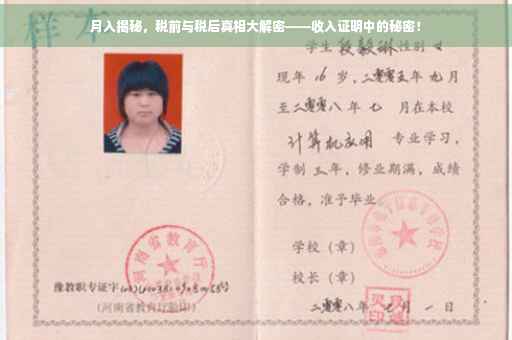 月入揭秘，税前与税后真相大解密——收入证明中的秘密！
样本
学生段毅琳性别女
现年16岁，二零零五年九月
至二零零八年七月在本校
计算机应用专业学习，
学制三年，修业期满，成绩
合格，准予毕业
学校（章）
校长（章）
二零零八年 月一日
河南省教育厅
豫教职专证字
（河南省教育厅验印）
之印